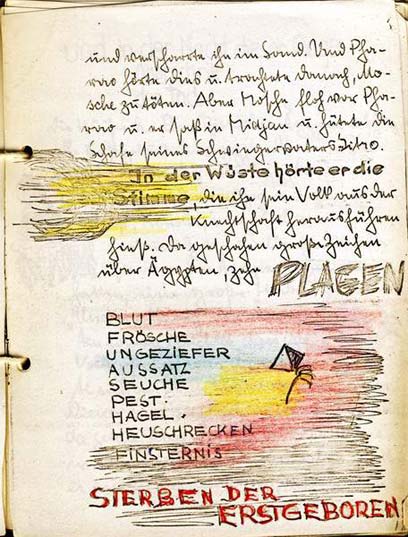 und verscharrte ihn im Sand. Und Pha-
rao hörte dies u. trachtete danach, Mo-
sche zu töten. Aber Mosche floh vor Pha-
rao u. er saß in Midjan u. hütete die
Schafe seines Schwiegervaters Jitro.
In der Wüste hörte er die
Stimme, die ihn sein Volk aus der
Knechtschaft herausführen
hieß. Da geschahen große Zeichen
über Ägypten, zehn PLAGEN
BLUT
FRÖSCHE
UNGEZIEFER
AUSSATZ
SEUCHE
PEST.
HAGEL.
HEUSCHRECKEN
FINSTERNIS
STERBEN DER
ERSTGEBOREN